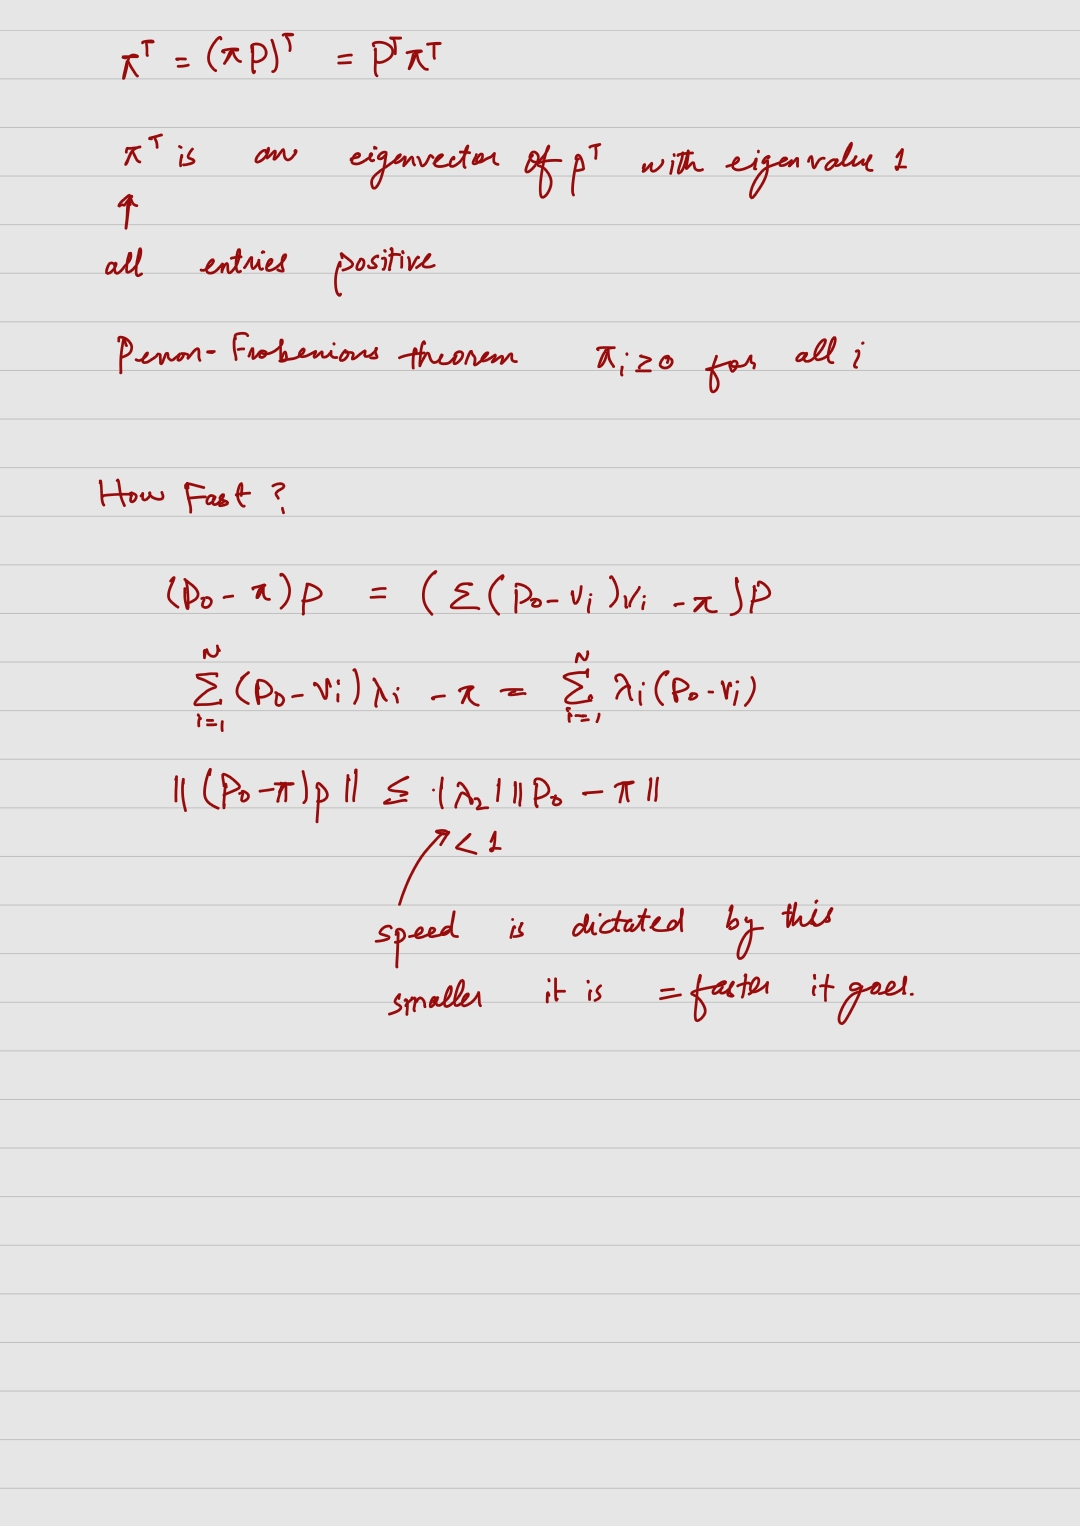 π^T = (πP)^T = P^T π^T
π^T is an eigenvector of P^T with eigenvalue 1
↑
all entries positive
Perron-Frobenious theorem π_i ≥ 0 for all i
How Fast ?
(P_0 - π)P = (Σ(P_0 - v_i)v_i - π)P
N Σ i=1 (P_0 - v_i) λ_i - π = N Σ i=1 λ_i (P_0 - v_i)
|| (P_0 - π)P || ≤ |λ_2| || P_0 - π ||
< 1
speed is dictated by this
smaller it is = faster it goes.